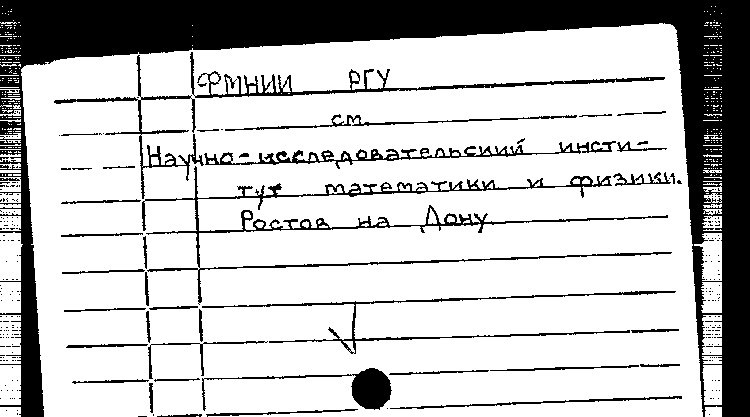 ФМНИИ РГУ
см.
Научно-исследовательский инсти-
тут математики и физики.
Ростов на Дону